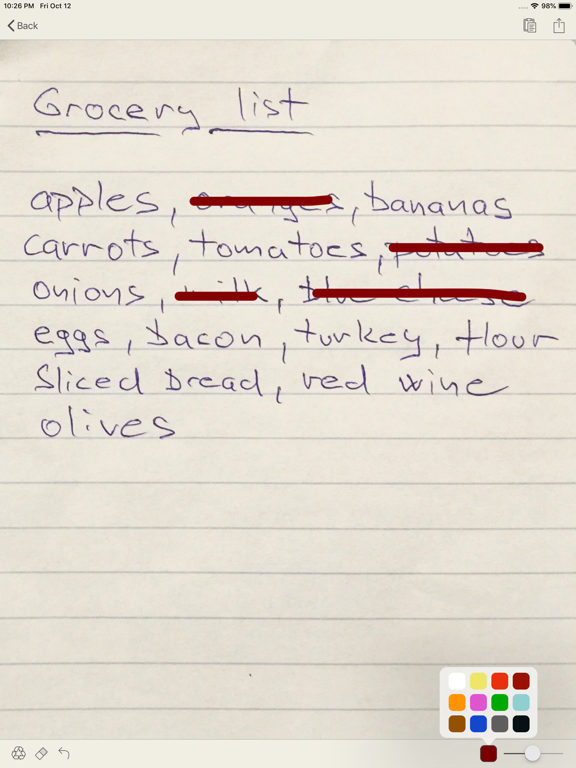 10:26 PM Fri Oct 12 98%
Back
Grocery list
apples, oranges, bananas
carrots, tomatoes, potatoes
onions, milk, blue cheese
eggs, bacon, turkey, flour
Sliced bread, red wine
olives